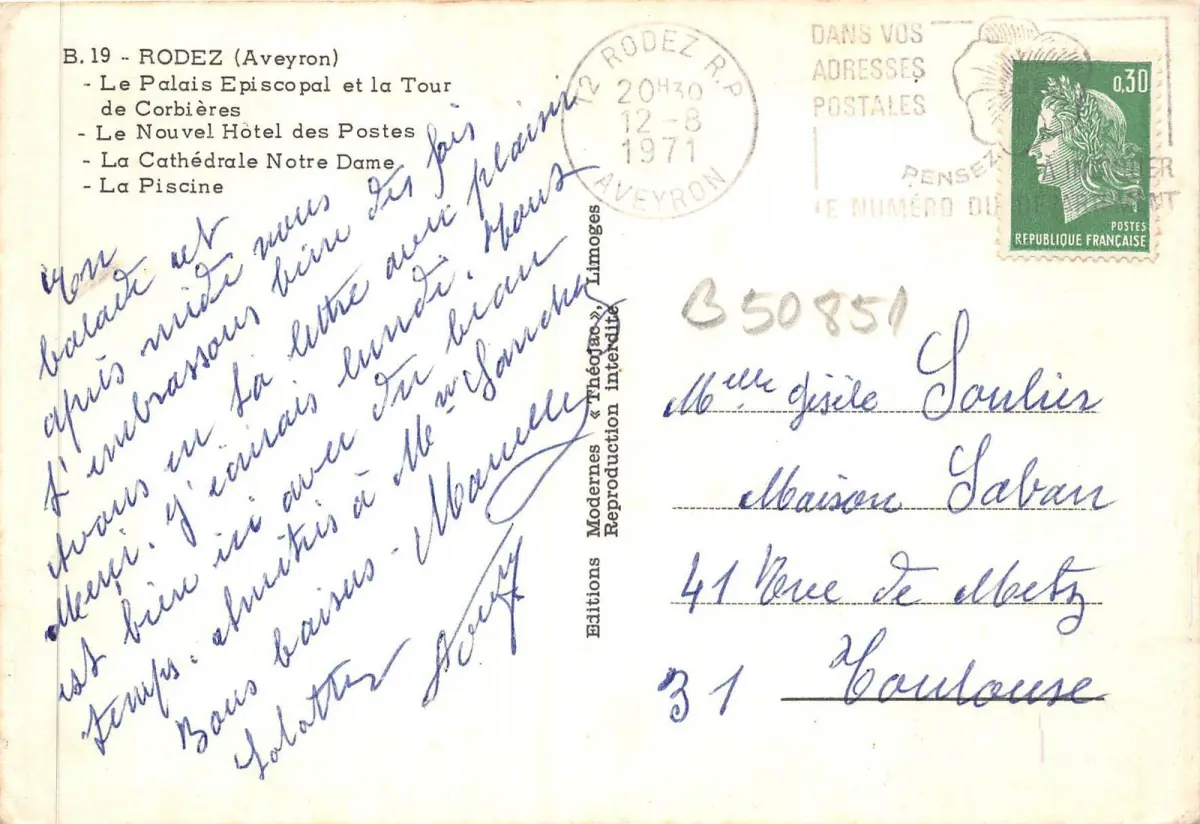 B.19 - RODEZ (Aveyron)
- Le Palais Episcopal et la Tour
de Corbières
- Le Nouvel Hôtel des Postes
- La Cathédrale Notre Dame
- La Piscine
12 RODEZ R.P
20H30
12-8
1971
AVEYRON
DANS VOS
ADRESSES
POSTALES
PENSEZ A
LE NUMÉRO DU
0,30
POSTES
REPUBLIQUE FRANÇAISE
En
balade cet
après midi nous
t'embrassons bien des fois
Avons eu ta lettre avec plaisir
Merci. J'écrirais lundi. Tout
est bien ici avec du beau
temps. Amitiés à Mme Sanchez
Bons baisers - Marcelle
B50851
Melle Gisèle Soulier
Maison Saban
41 Rue de Metz
31 Toulouse
Editions Modernes « Théojac », Limoges
Reproduction interdite